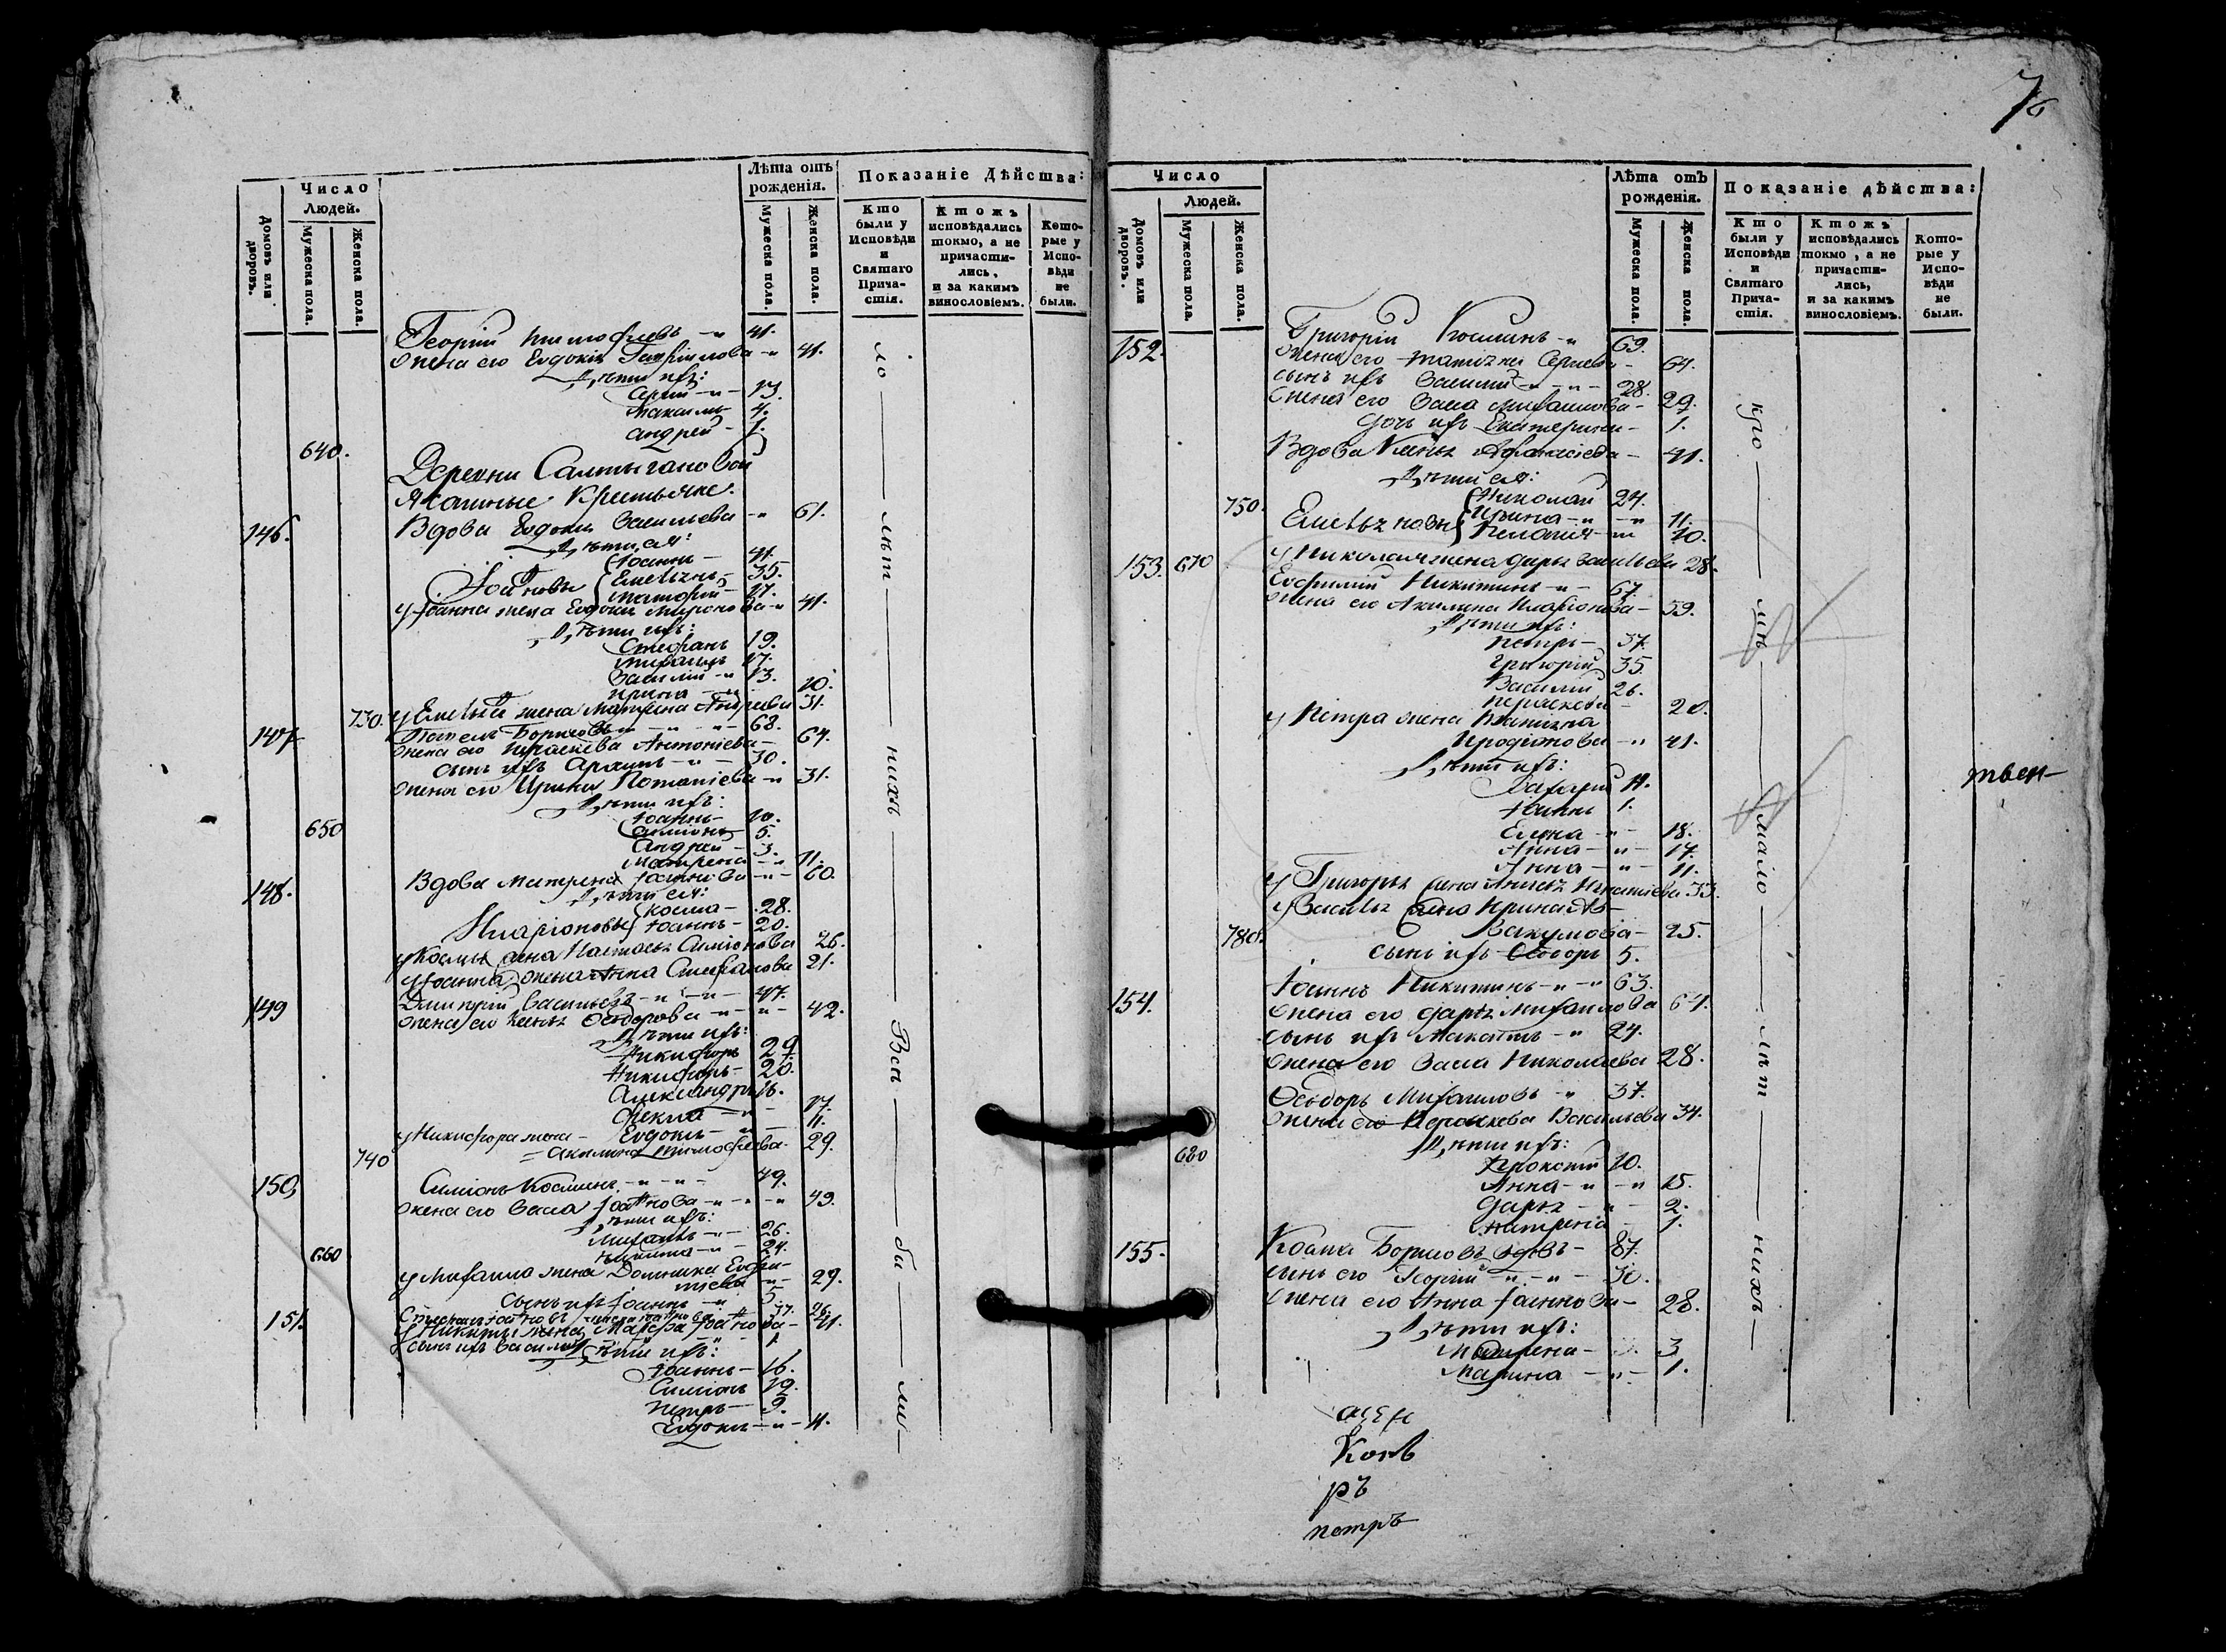 Число Людей.
Домовъ или дворовъ.
Мужеска пола.
Женска пола.
Лѣта отъ рожденія.
Мужеска пола.
Женска пола.
Показаніе Дѣйства:
Кто были у Исповѣди и Святаго Прича-стія.
Ктожъ исповѣдались токмо, а не причасти-лись, и за какимъ винословіемъ.
Кото-рые у Испо-вѣди не были.
Георгій Тимофеевъ 41.
Жена его Евдокія Гавріилова 41.
Дѣти ихъ:
Сергій 13.
Максимъ 4.
Андрей 1.
640.
Деревни Салтыгановой
Ясашные Крестьяне.
146. Вдова Евдокія Васильева 61.
Дѣти ея:
Іоанновы
Іоаннъ 41.
35.
у Іоанна жена Евдокія Миронова 41.
Дѣти ихъ:
Стефанъ 19.
Михаилъ 17.
Василій 13.
Ирина 10.
730. жена Матрена Андреева 31.
147 Борисовъ 68.
Жена его Параскева Антоніева 64.
сынъ ихъ 30.
Жена его Ирина 31.
Дѣти ихъ:
Іоаннъ 10.
650 Симіонъ 5.
Андрей 3.
Матрена 11.
148. Вдова Матрена Іоаннова 60.
Дѣти ея:
Иларіоновы
Косма 28.
Іоаннъ 20.
у Космы жена Симіонова 26.
у Іоанна жена Анна Стефанова 21.
149 Димитрій Васильевъ 47.
Жена его Феодорова 42.
Дѣти ихъ:
Никифоръ 27.
Никифоръ 20.
Александръ 16.
Фекла 17.
Евдокія 11.
у Никифора жена
Акилина Тимофеева 29.
740
150 Симіонъ Косминъ 49.
Жена его Васса Іоаннова 49.
Дѣти ихъ:
Михаилъ 26.
660 Никита 24.
у Михаила жена Домника
29.
сынъ ихъ Іоаннъ 5
151. Стефанъ Іоанновъ 37. 26.
у Никиты жена Марфа Іоаннова 41.
сынъ ихъ Василій 1
Дѣти ихъ:
Іоаннъ 16.
Симіонъ
Петръ
Евдокія 11.
ло — лѣт — нихъ — Всѣ — бы — ли —
76
Число
Людей.
Домовъ или дворовъ.
Мужеска пола.
Женска пола.
Лѣта отъ рожденія.
Мужеска пола.
Женска пола.
Показаніе дѣйства:
Кто были у Исповѣди и Святаго Прича-стія.
Ктожъ исповѣдались токмо, а не причасти-лись, и за какимъ винословіемъ.
Кото-рые у Испо-вѣди не были.
152. Григорій Косминъ 69.
Жена его Татіана Сергіева 64.
сынъ ихъ Василій 28.
Жена его Васса Михаилова 29.
дочь ихъ Екатерина 1.
Вдова Афанасіева 41.
Дѣти ея:
750.
Николай 24.
Ирина 11.
Пелагія 10.
153. 670 у Николая жена Дарья Васильева 28.
Евфимій Никитинъ 67.
Жена его Акилина Иларіонова 59.
Дѣти ихъ:
Петръ 37.
Григорій 35.
Василій 26.
Параскева 20.
у Петра жена Татіана
Иродіонова 41.
Дѣти ихъ:
Захарій 11.
Іоаннъ 1.
Елена 18.
Анна 17.
Анна 11.
у Григорья жена Игнатіева 33.
у Василья жена Ирина
780. Вакулова 25.
сынъ ихъ Феодоръ 5.
154. Іоаннъ Никитинъ 63.
Жена его Дарья Михаилова 61.
сынъ ихъ 24.
Жена его Васса Николаева 28.
Феодоръ Михаиловъ 37.
Жена его Параскева Васильева 34.
Дѣти ихъ:
680 Прокопій 10.
Анна 15.
Дарья 2.
Матрена 1.
155. Косма Борисовъ вдовъ 87.
сынъ его Георгій 30.
Жена его Анна Іоаннова 28.
Дѣти ихъ:
Матрена 3
Марина 1.
куло — мѣ — мало — лѣт — нихъ —
твен-
Конв
ръ
петръ